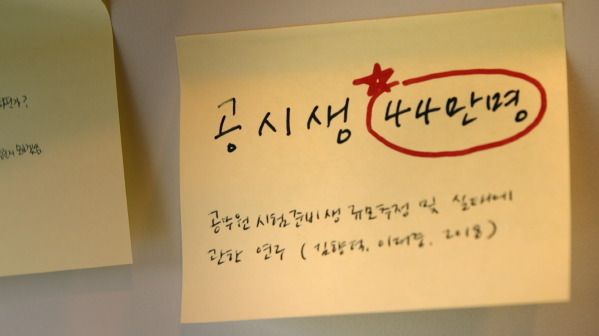 공시생 44만명
공무원 시험준비생 규모추정 및 실태에
관한 연구 (김향덕, 이대중, 2018)